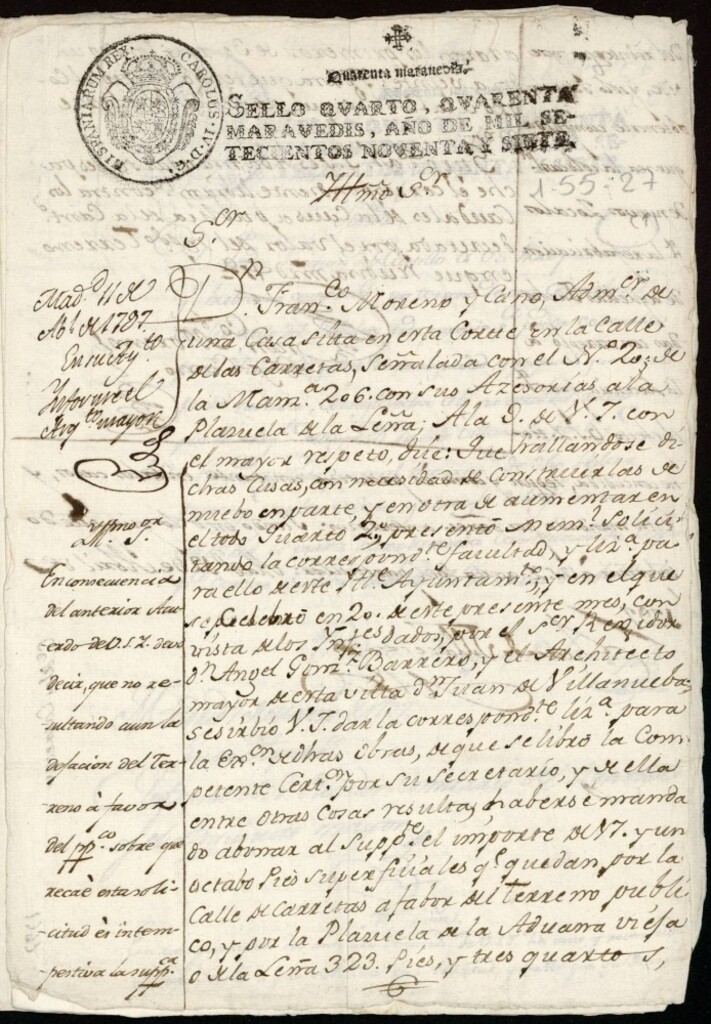 HISPANIARUM REX. CAROLUS·IV·D·G·
Quarenta maravedis.
SELLO QVARTO, QVARENTA
MARAVEDIS, AÑO DE MIL SE-
TECIENTOS NOVENTA Y SIETE.
Illmo Sor
1-55-27
Sor
Madd 11 de
Abl de 1797.
Informe el
Arqto mayor
Dn. Franco Moreno y Cano, Admor de
una Casa sitta en esta Corte en la Calle
de las Carretas, señalada con el No. 2o; de
la Manza 206. con sus Azesorias a la
Plazuela de la Leña; A la D. de V. I. con
el mayor respeto, dice: Que hallandose di-
chas Casas, con necesidad de Construirlas de
nuebo en parte, y en otra de aumentar en
el todo Quarto 2o, presentó Meml. solici-
tando la correspondte facultad, y liza pa-
ra ello de este Itte Ayuntamto, y en el que
se Celebró en 20. de este presente mes, con
vista de los Ynfes dados, por el Sor Regidor
Dn Angel Gonz. Barrero, y el Architecto
mayor de esta villa Dn Juan de Villanueba;
se sirbió V. I. dar la correspondte liza para
la Exon de dhas obras, de que se libró la Com-
petente Certon por su Secretario, y de ella
entre otras Cosas resulta, haberse manda-
do abonar al Suppte el importe de 17. y un
octabo Pies superficiales qe quedan, por la
Calle de Carretas a fabor del Terreno publi-
co, y por la Plazuela de la Aduana vieja
o de la Leña 323. Pies, y tres quartos,
Illmo Sor
En consecuencia
del anterior Acu-
erdo de V. S. I. devo
decir, que no re-
sultando aun la
dejacion del Ter-
reno à favor
del ppco. sobre que
recaè esta soli-
citud es intem-
pestiva la suppca